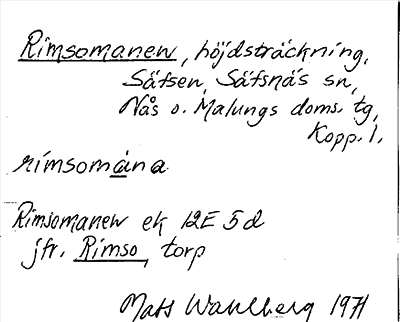 Rimsomanen, höjdsträckning,
Säfsen, Säfsnäs sn,
Nås o. Malungs doms. tg,
Kopp. l.
rimsomana
Rimsomanen ek 12E 5d
jfr. Rimso, torp
Mats Wahlberg 1971